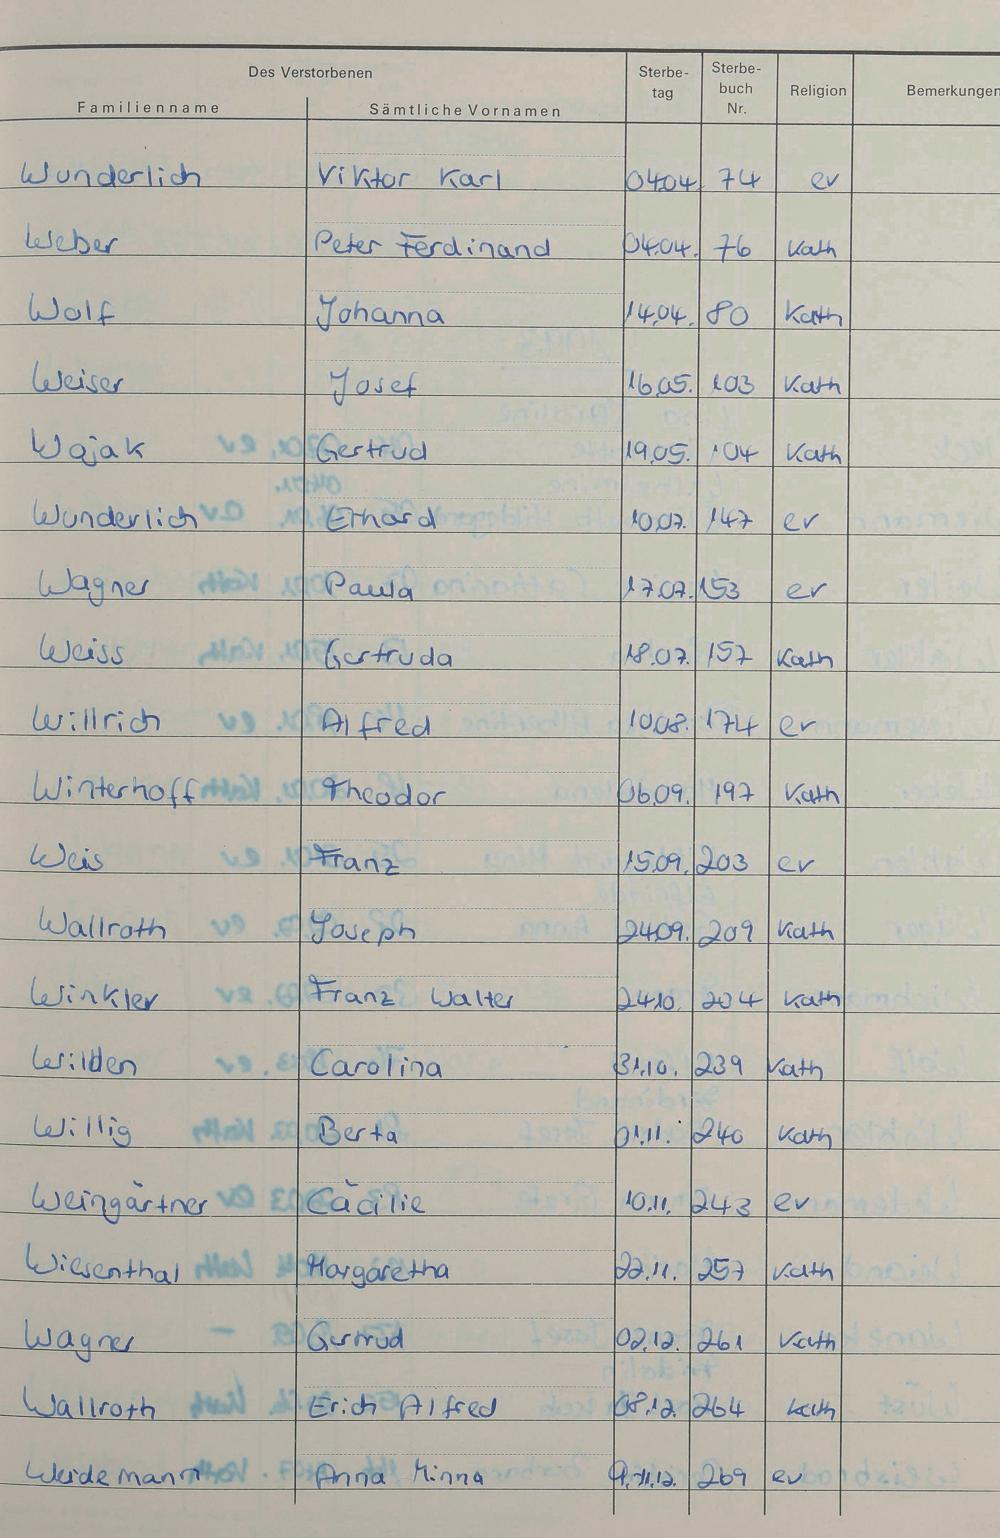 Des Verstorbenen
Sterbe-
tag
Sterbe-
buch
Nr.
Religion
Bemerkungen
Familienname Sämtliche Vornamen
Wunderlich Viktor Karl 04.04. 74 ev
Weber Peter Ferdinand 04.04. 76 Kath
Wolf Johanna 14.04. 80 Kath
Weiser Josef 16.05. 103 Kath
Wajak Gertrud 19.05. 104 Kath
Wunderlich Erhard 10.07. 147 ev
Wagner Paula 17.07. 153 ev
Weiss Gertruda 18.07. 157 Kath
Willrich Alfred 10.08. 174 ev
Winterhoff Theodor 06.09. 197 Kath
Weis Franz 15.09. 203 ev
Wallroth Joseph 24.09. 209 Kath
Winkler Franz Walter 24.10. 204 Kath
Wilden Carolina 31.10. 239 Kath
Willig Berta 01.11. 240 Kath
Weingärtner Cäcilie 10.11. 243 ev
Wiesenthal Margaretha 22.11. 257 Kath
Wagner Gertrud 02.12. 261 Kath
Wallroth Erich Alfred 08.12. 264 Kath
Weidemann Anna Minna 269 ev